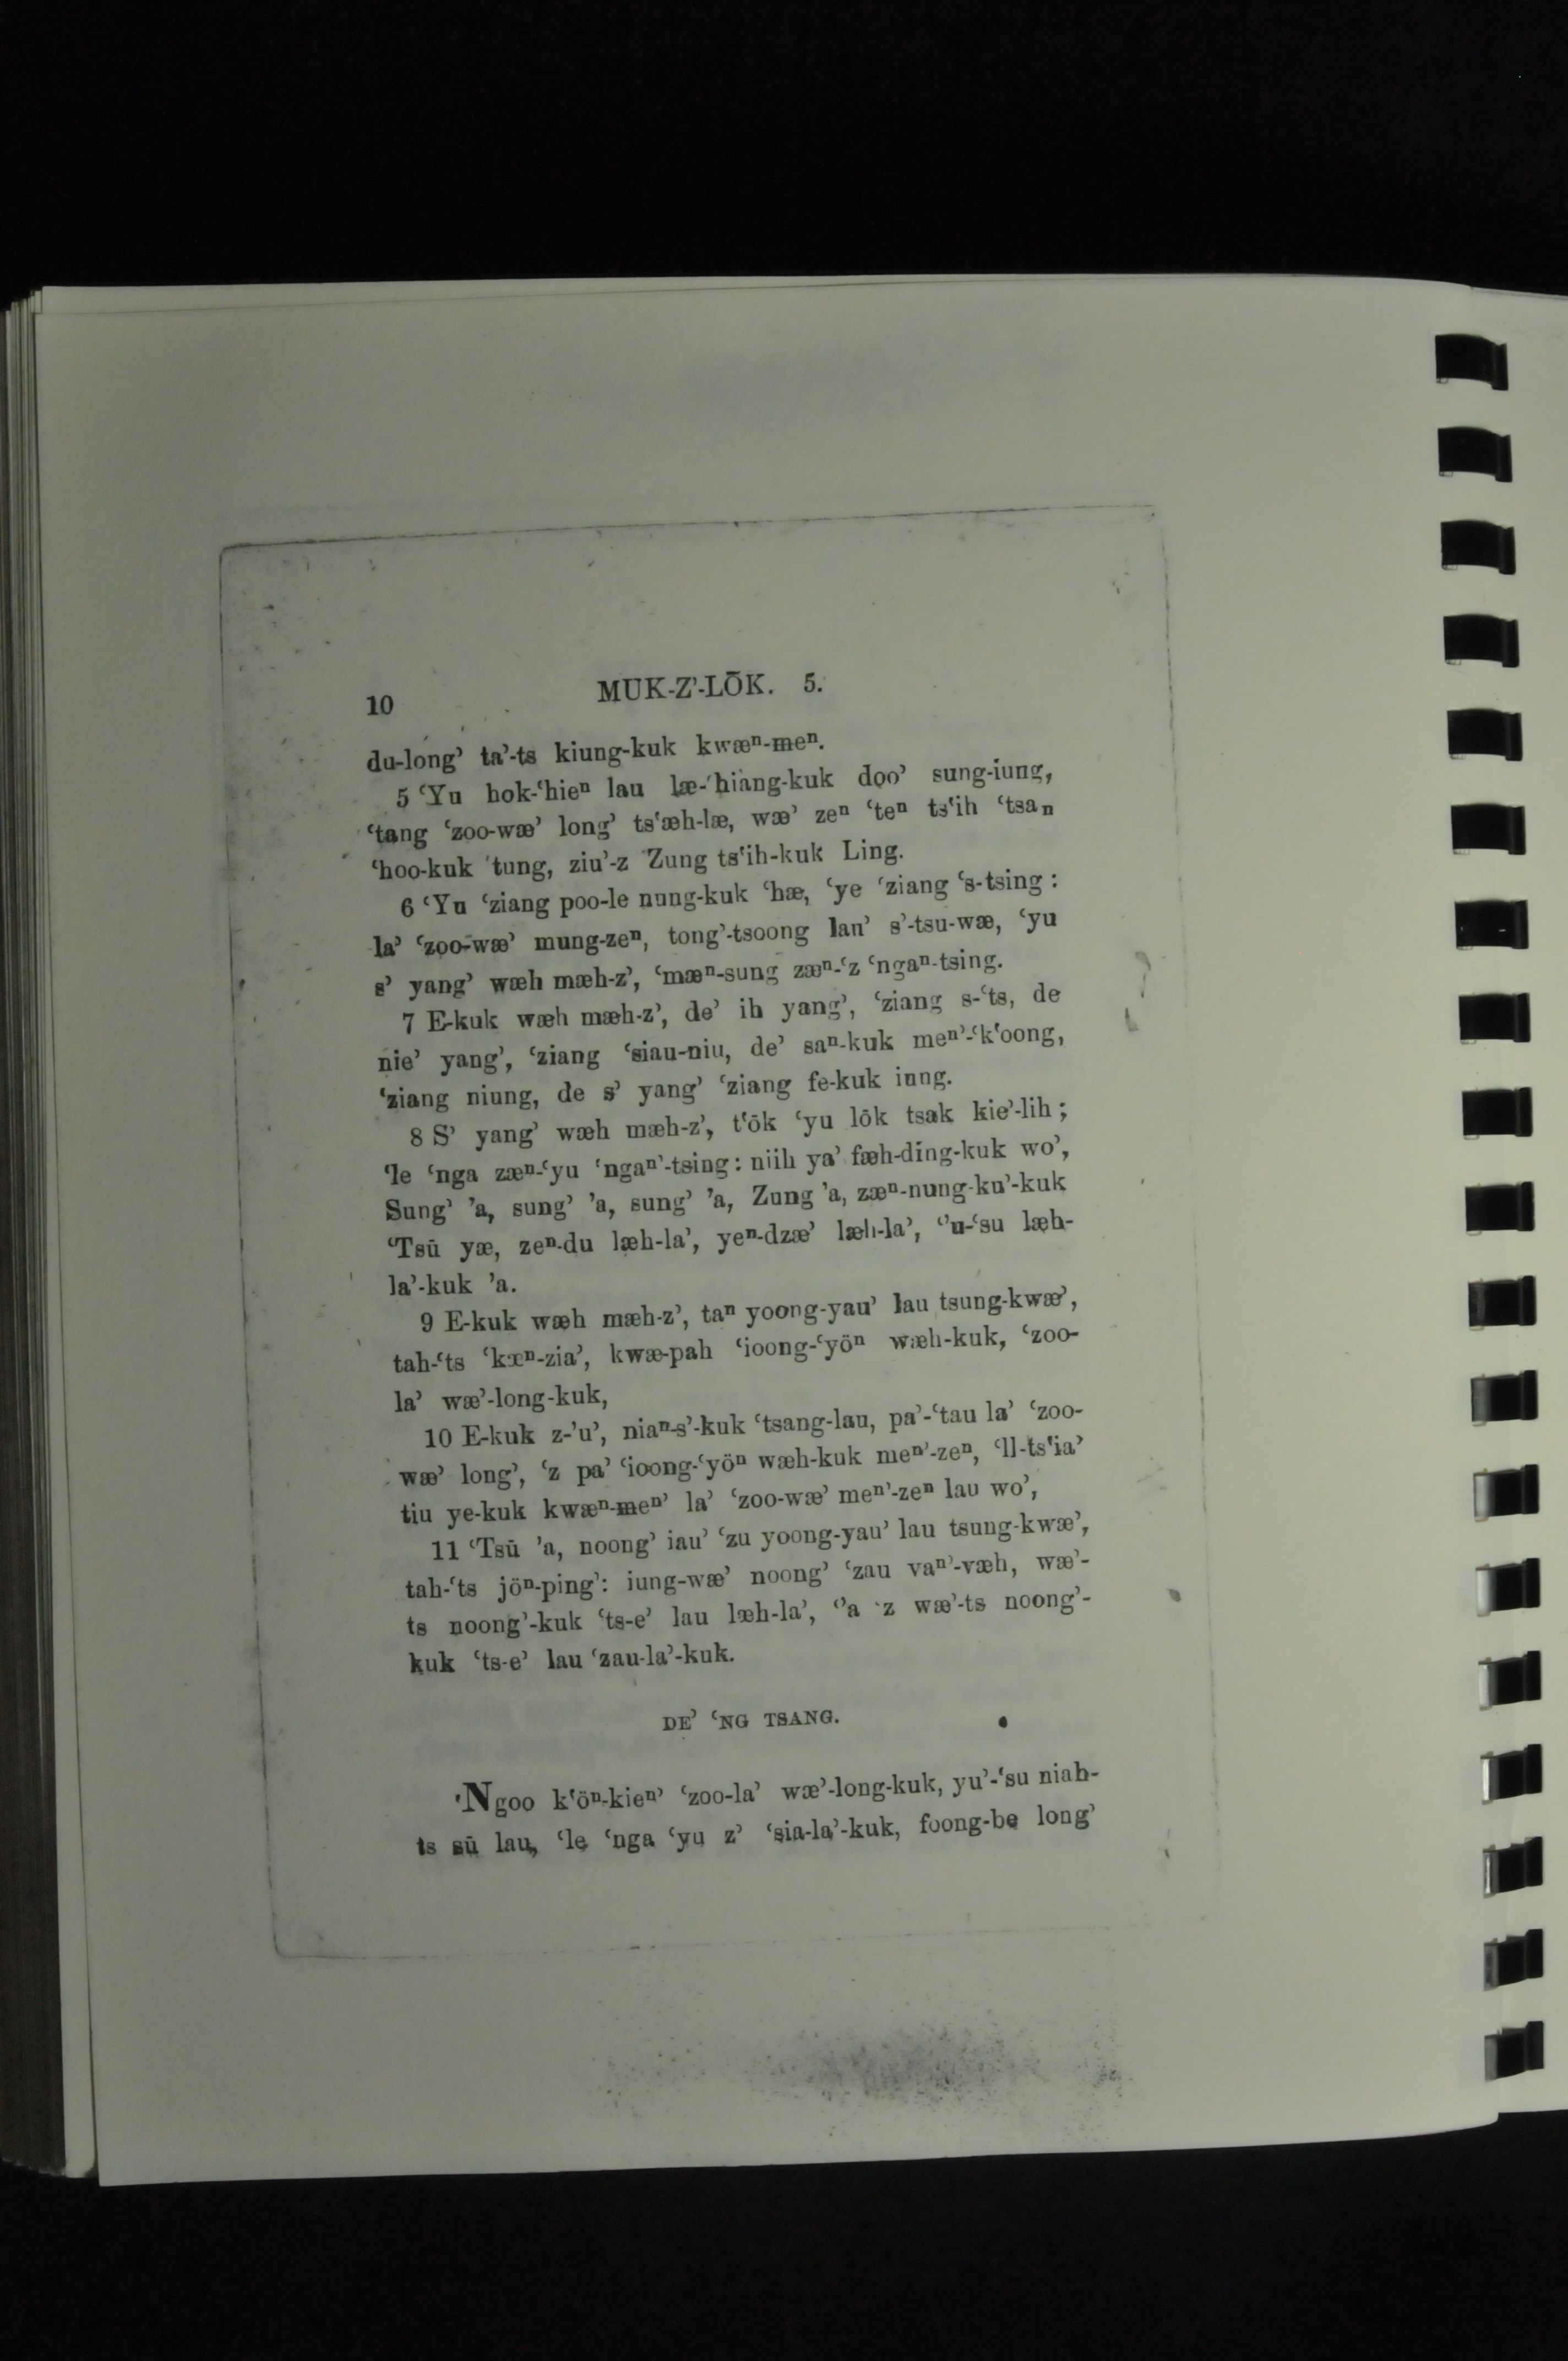 10 MUK-Z’-LŌK. 5.
du-long’ ta’-ts kiung-kuk kwæⁿ-meⁿ.
5 ‘Yu hok-‘hieⁿ lau læ-‘hiang-kuk doo’ sung-iung,
‘tang ‘zoo-wæ’ long’ ts‘æh-læ, wæ’ zeⁿ ‘teⁿ ts‘ih ‘tsaⁿ
‘hoo-kuk tung, ziu’-z Zung ts‘ih-kuk Ling.
6 ‘Yu ‘ziang poo-le nung-kuk ‘hæ, ‘ye ‘ziang ‘s-tsing:
la’ ‘zoo-wæ’ mung-zeⁿ, tong’-tsoong lau’ s’-tsu-wæ, ‘yu
s’ yang’ wæh mæh-z’, ‘mæⁿ-sung zæⁿ-‘z ‘ngaⁿ-tsing.
7 E-kuk wæh mæh-z’, de’ ih yang’, ‘ziang s-‘ts, de
nie’ yang’, ‘ziang ‘siau-niu, de’ saⁿ-kuk meⁿ’-‘k‘oong,
‘ziang niung, de s’ yang’ ‘ziang fe-kuk iung.
8 S’ yang’ wæh mæh-z’, t‘ōk ‘yu lōk tsak kie’-lih;
‘le ‘nga zæⁿ-‘yu ‘ngaⁿ’-tsing: niih ya’ fæh-ding-kuk wo’,
Sung’ ’a, sung’ ’a, sung’ ’a, Zung ’a, zæⁿ-nung-ku’-kuk
‘Tsū yæ, zeⁿ-du læh-la’, yeⁿ-dzæ’ læh-la’, ‘’u-‘su læh-
la’-kuk ’a.
9 E-kuk wæh mæh-z’, taⁿ yoong-yau’ lau tsung-kwæ’,
tah-‘ts ‘kæⁿ-zia’, kwæ-pah ‘ioong-‘yöⁿ wæh-kuk, ‘zoo-
la’ wæ’-long-kuk,
10 E-kuk z-’u’, niaⁿ-s’-kuk ‘tsang-lau, pa’-‘tau la’ ‘zoo-
wæ’ long’, ‘z pa’ ‘ioong-‘yöⁿ wæh-kuk meⁿ’-zeⁿ, ‘ll-ts‘ia’
tiu ye-kuk kwæⁿ-meⁿ’ la’ ‘zoo-wæ’ meⁿ’-zeⁿ lau wo’,
11 ‘Tsū ’a, noong’ iau’ ‘zu yoong-yau’ lau tsung-kwæ’,
tah-‘ts jöⁿ-ping’: iung-wæ’ noong’ ‘zau vaⁿ’-væh, wæ’-
ts noong’-kuk ‘ts-e’ lau læh-la’, ‘’a ‘z wæ’-ts noong’-
kuk ‘ts-e’ lau ‘zau-la’-kuk.
DE’ ‘NG TSANG.
‘Ngoo k‘öⁿ-kieⁿ’ ‘zoo-la’ wæ’-long-kuk, yu’-‘su niah-
ts sū lau, ‘le ‘nga ‘yu z’ ‘sia-la’-kuk, foong-be long’